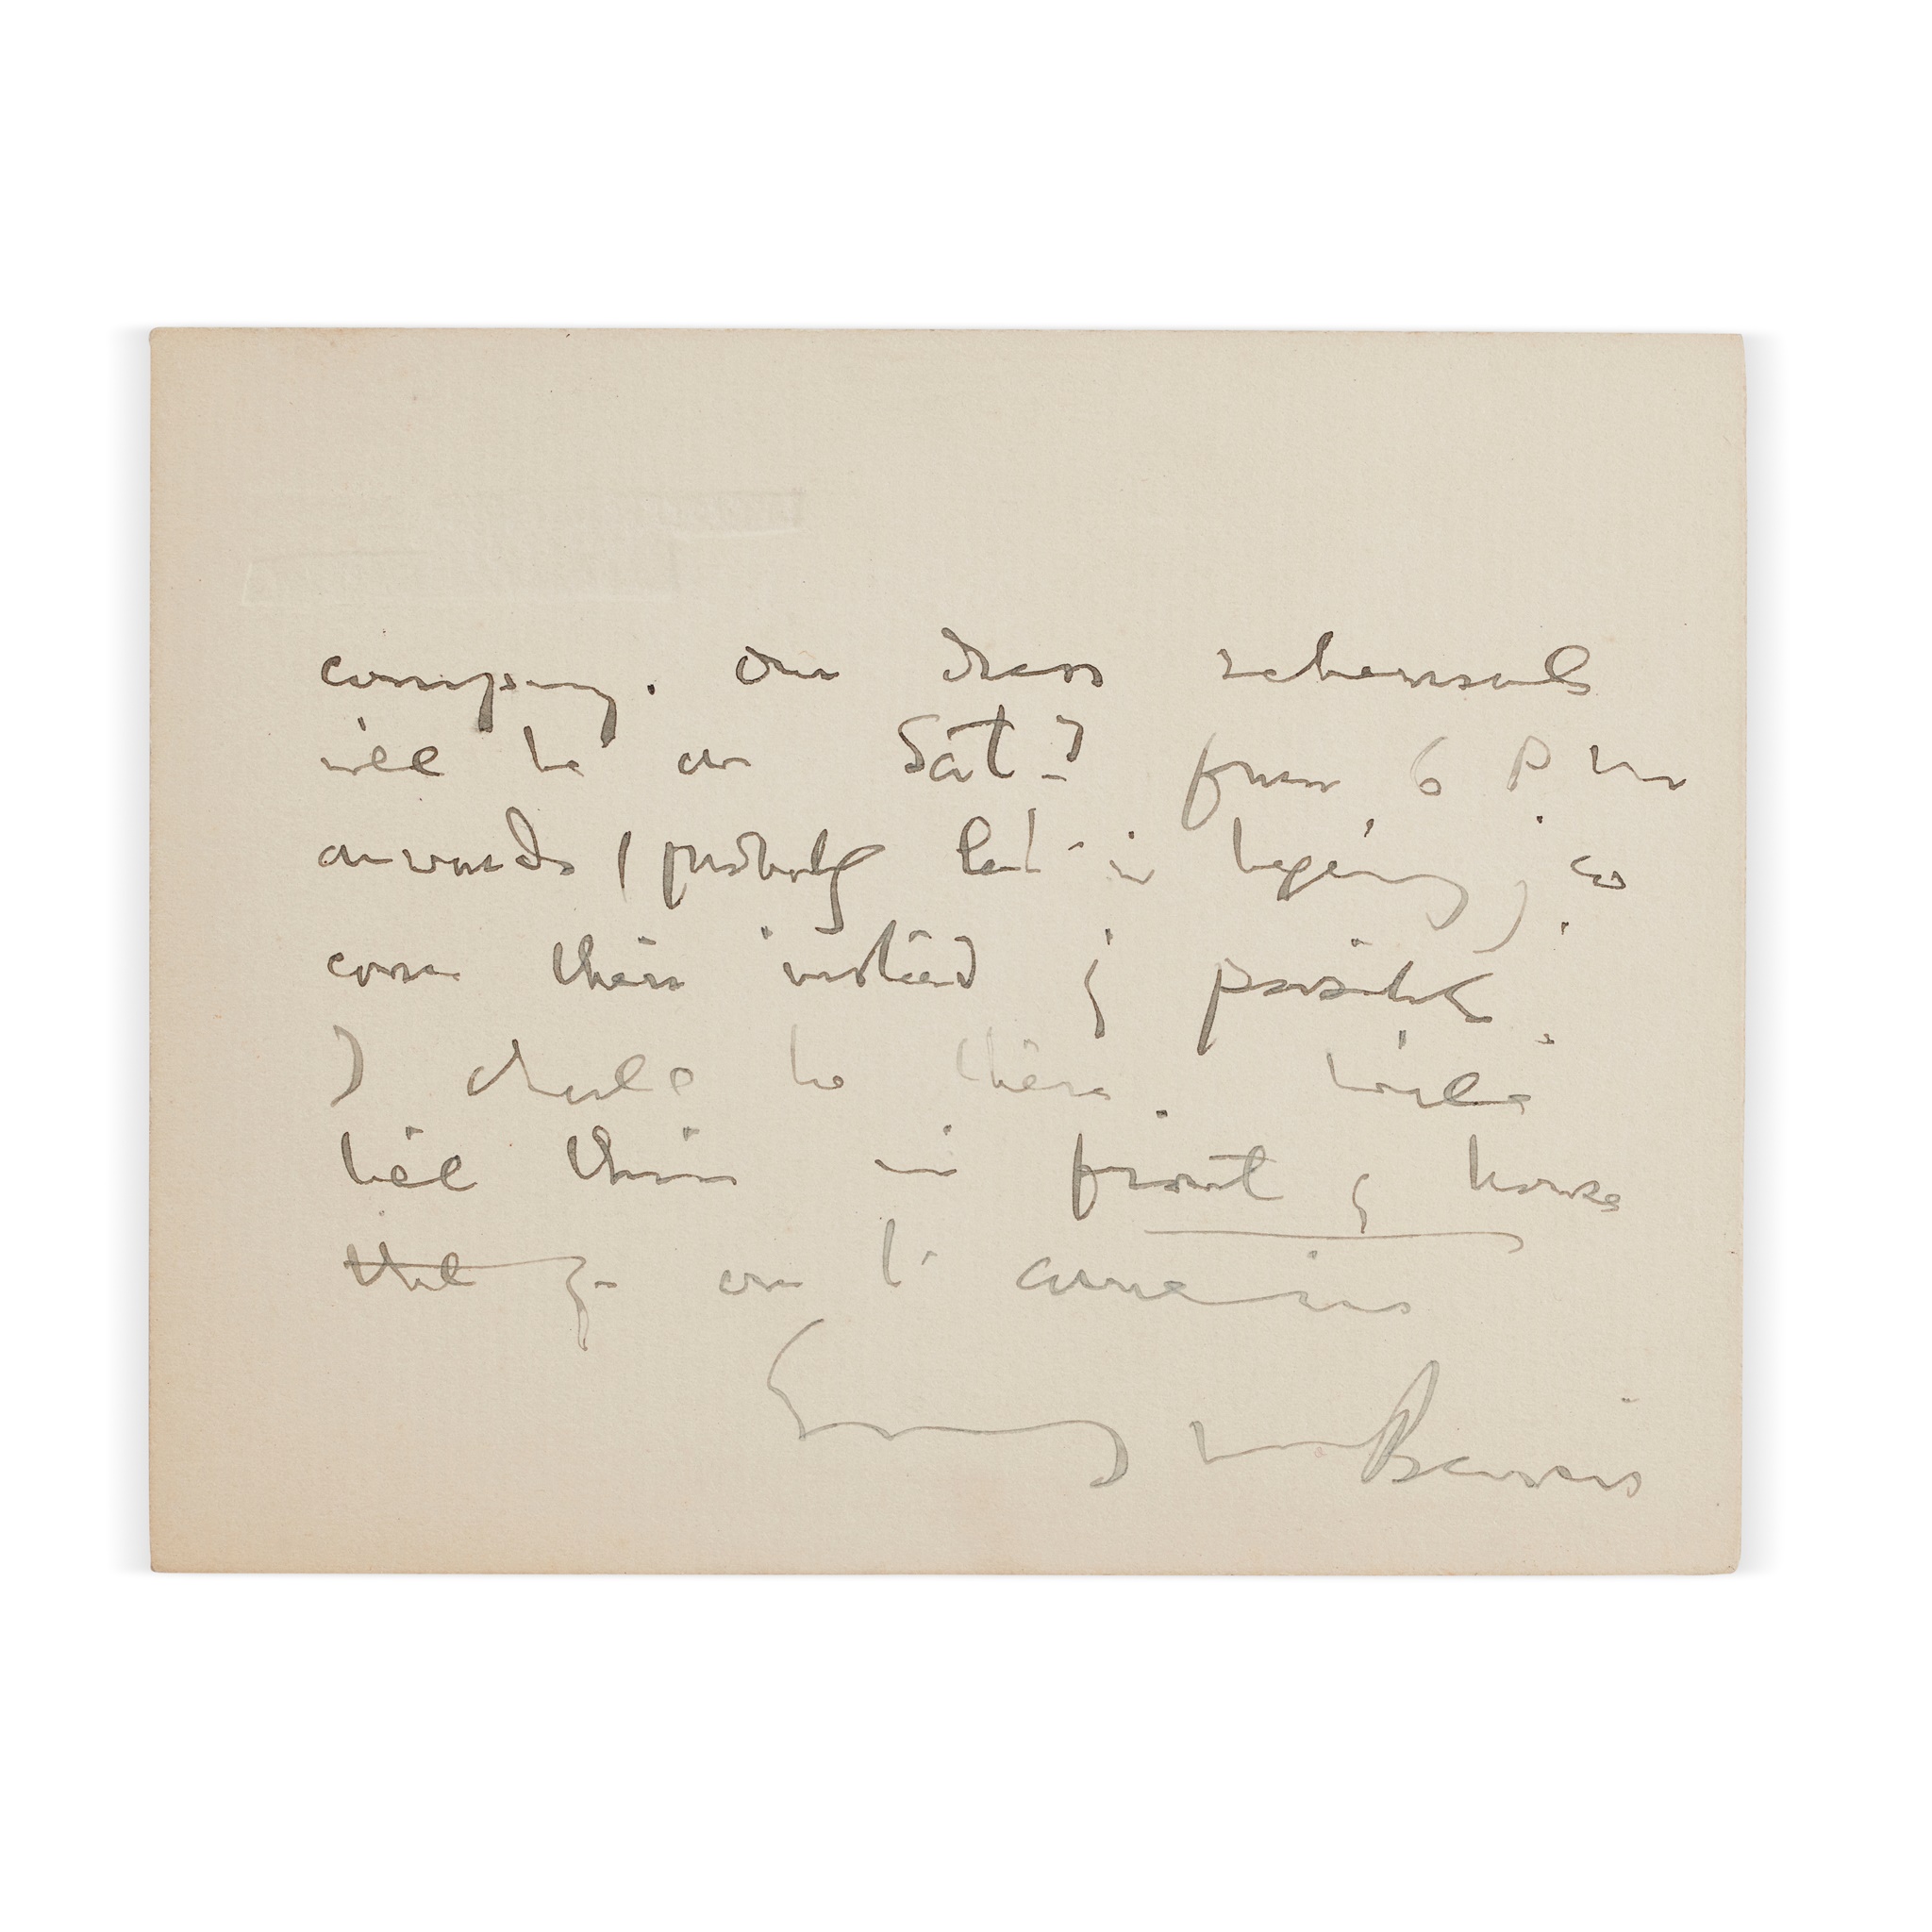 company. Our dress rehearsals
will be on Satd from 6 P m
onwards (probably late in beginning), so
come there instead if possible.
I shall be there. Will
tell them in front of house
that you are to come in
J M Barrie